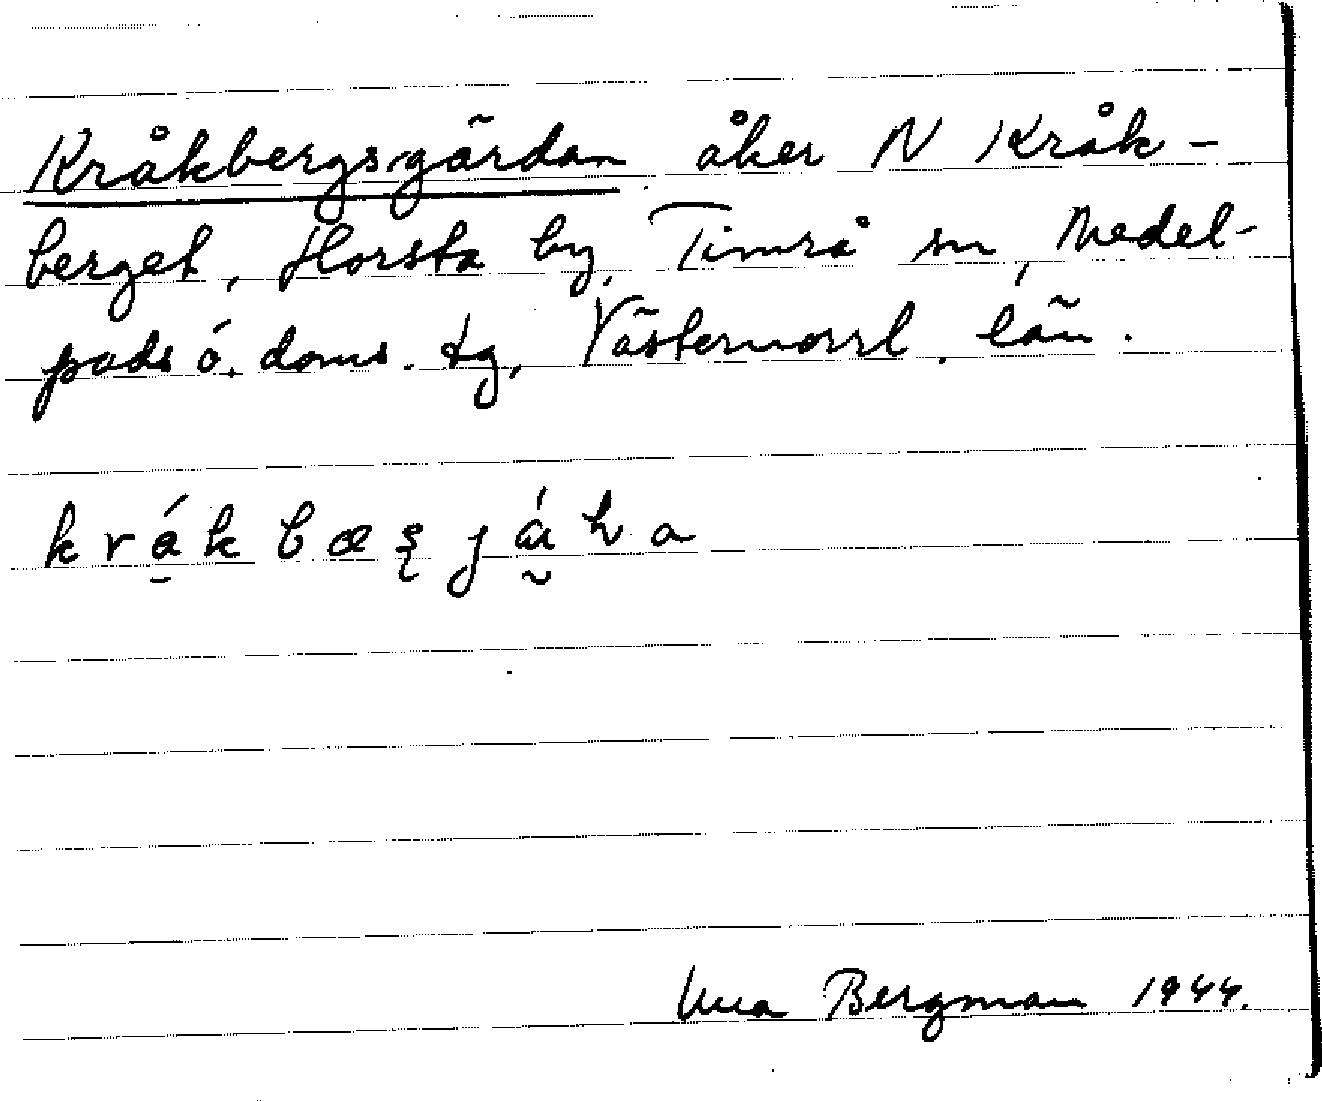 Kråkbergsgärdan åker N Kråk-
berget, Horsta by, Timrå sn, Medel-
pads ö. doms. tg, Västernorrl. län.
Bergman 1944.